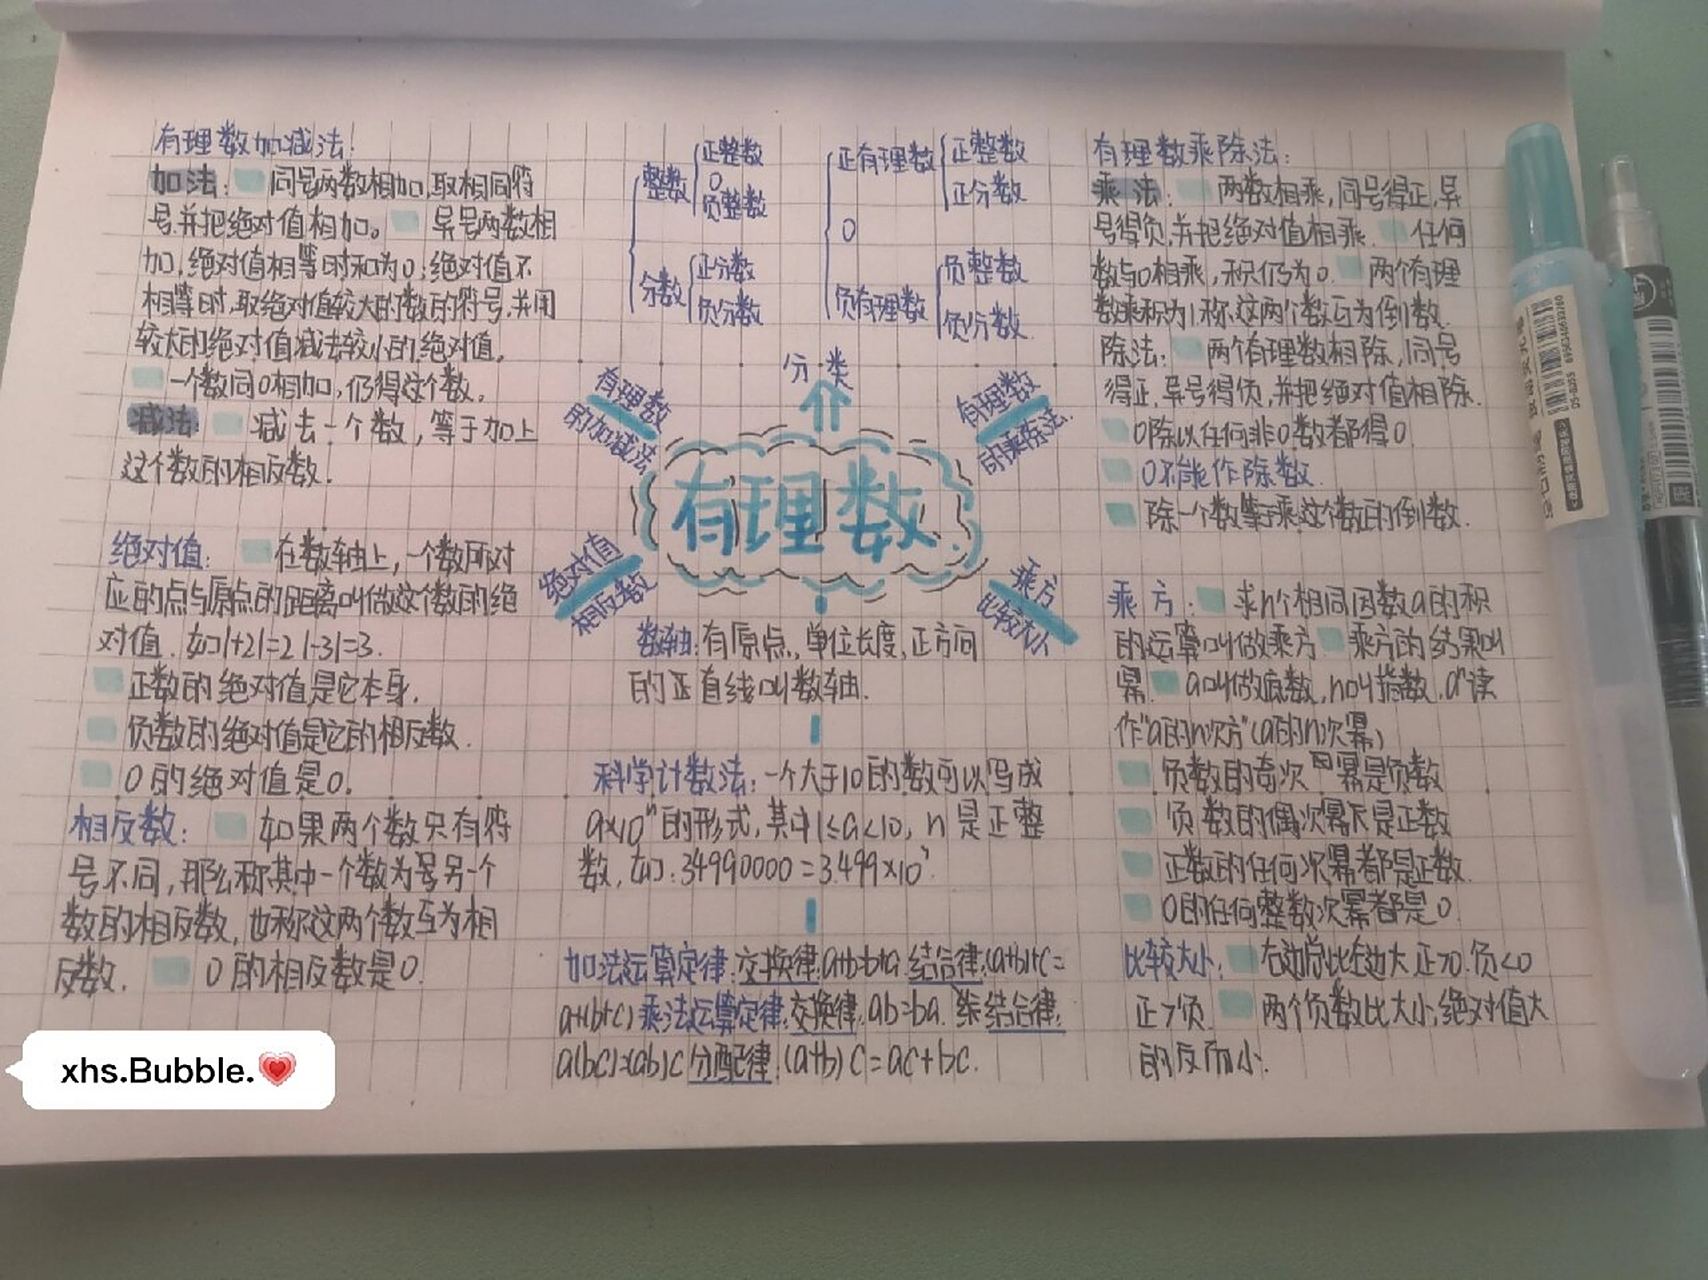 有理数加减法:
加法: 同号两数相加,取相同符
号,并把绝对值相加。 异号两数相
加,绝对值相等时和为0;绝对值不
相等时,取绝对值较大的数的符号,并用
较大的绝对值减法较小的绝对值。
一个数同0相加,仍得这个数。
减法: 减去一个数,等于加上
这个数的相反数.
绝对值: 在数轴上,一个数所对
应的点与原点的距离叫做这个数的绝
对值. 如|+2|=2 |-3|=3.
正数的绝对值是它本身.
负数的绝对值是它的相反数.
0的绝对值是0.
相反数: 如果两个数只有符
号不同,那么称其中一个数为另一个
数的相反数,也称这两个数互为相
反数. 0的相反数是0.
整数
正整数
0
负整数
分数
正分数
负分数
正有理数
正整数
正分数
0
负有理数
负整数
负分数
分类
有理数
的加减法
有理数
的乘除法
有理数
绝对值
相反数
乘方
比较大小
数轴:有原点,单位长度,正方向
的直线叫数轴.
科学计数法:一个大于10的数可以写成
a×10ⁿ的形式,其中1≤a<10, n是正整
数,如:34990000=3.499×10⁷
加法运算定律:交换律:a+b=b+a 结合律:(a+b)+c=
a+(b+c) 乘法运算定律:交换律:ab=ba. 结合律:
a(bc)=(ab)c 分配律:(a+b)c=ac+bc.
有理数乘除法:
乘法: 两数相乘,同号得正,异
号得负,并把绝对值相乘. 任何
数与0相乘,积仍为0. 两个有理
数乘积为1,称这两个数互为倒数.
除法: 两个有理数相除,同号
得正,异号得负,并把绝对值相除.
0除以任何非0数都得0
0不能作除数.
除一个数等于乘这个数的倒数.
乘方: 求n个相同因数a的积
的运算叫做乘方 乘方的结果叫
幂. a叫做底数,n叫指数,aⁿ读
作"a的n次方"(a的n次幂)
负数的奇次幂是负数
负数的偶次幂是正数
正数的任何次幂都是正数.
0的任何整数次幂都是0.
比较大小: 右边总比左边大 正>0.负<0
正>负. 两个负数比大小,绝对值大
的反而小.
xhs.Bubble.💗